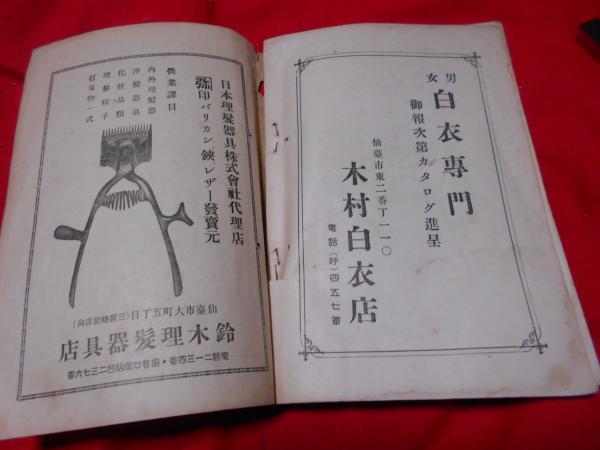 男女 白衣專門
御報次第カタログ進呈
仙臺市東二番丁一一〇
木村白衣店
電話(呼)四五七番
日本理髮器具株式會社代理店
弥印バリカン、鋏、レザー發賣元
營業課目
內外理髮器
洋髮器具
化粧品類
理髮椅子
打刄物一式
仙臺市大町五丁目(三原時計店向)
鈴木理髮器具店
電話二一三四番・振替口座仙台二三七六番